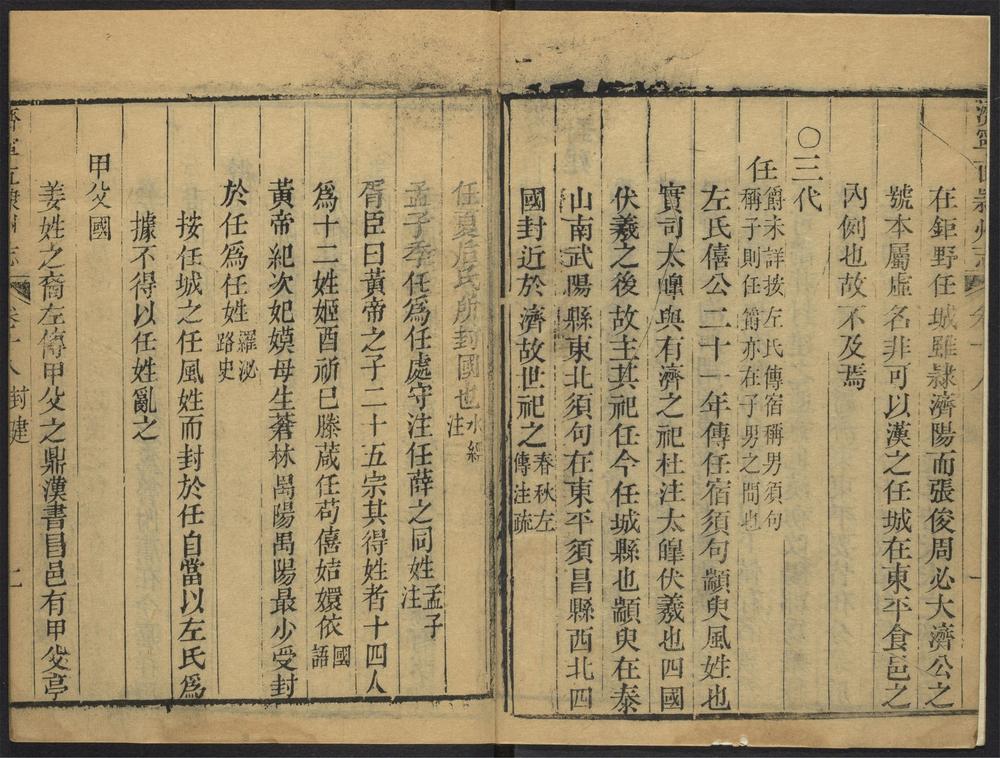 濟寧直隸州志
在鉅野任城雖隸濟陽而張俊周必大濟公之
號本屬虛名非可以漢之任城在東平食邑之
內例也故不及焉
○三代
任爵未詳按左氏傳宿稱男須句
稱子則任爵亦在子男之間也
左氏僖公二十一年傳任宿須句顓臾風姓也
實司太皥與有濟之祀杜注太皥伏羲也四國
伏羲之後故主其祀任今任城縣也顓臾在泰
山南武陽縣東北須句在東平須昌縣西北四
國封近於濟故世祀之春秋左
傳注疏
任夏后氏所封國也水經
注
孟子季任為任處守注任薛之同姓孟子
注
胥臣曰黃帝之子二十五宗其得姓者十四人
為十二姓姬酉祈巳滕葴任荀僖姞嬛依國
語
黃帝紀次妃嫫母生蒼林禺陽禺陽最少受封
於任為任姓羅泌
路史
按任城之任風姓而封於任自當以左氏為
據不得以任姓亂之
甲父國
姜姓之裔左傳甲父之鼎漢書昌邑有甲父亭
濟寧直隸州志 卷十八 封建 二